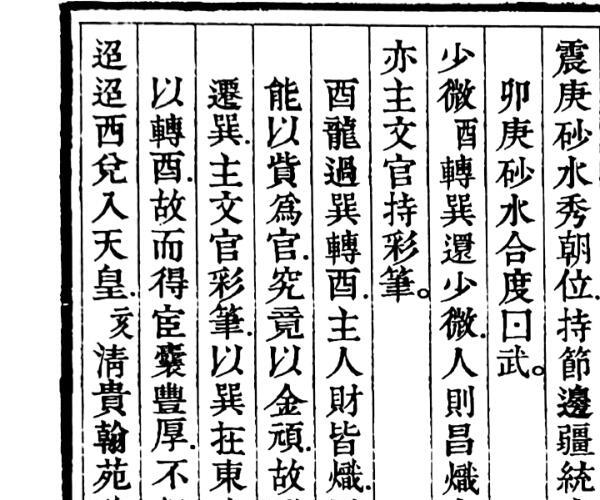 震庚砂水秀朝位.持節邊疆統
卯庚砂水合度曰武。
少微酉轉巽還少微.人則昌熾
亦主文官持彩筆。
酉龍過巽轉酉.主人財皆熾.
能以貲爲官.究竟以金頑故
遷巽.主文官彩筆.以巽在東
以轉酉.故而得宦囊豐厚.不
迢迢西兌入天皇.亥清貴翰苑